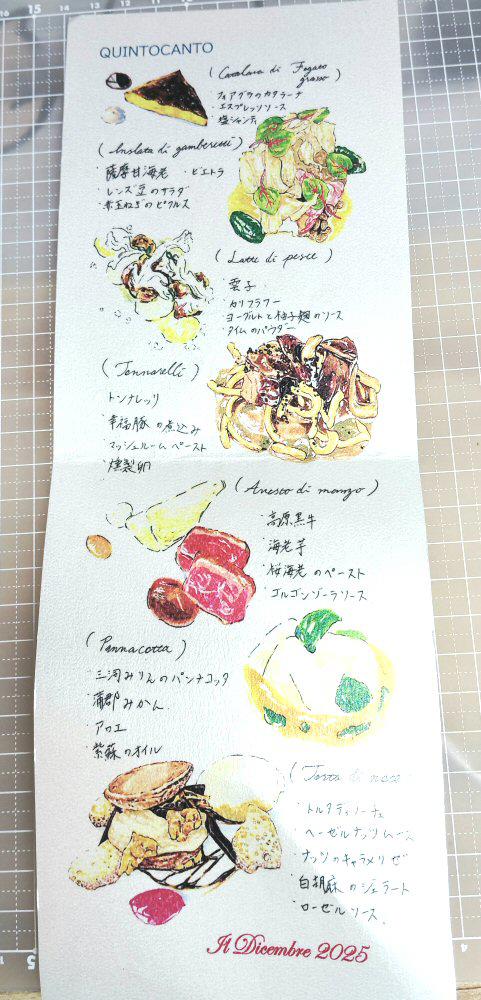 QUINTOCANTO
(Catalana di Fegato
grasso)
・フォアグラのカタラーナ
・エスプレッソソース
・塩シャンティ
(Inslata di gamberetti)
・薩摩甘海老 ・ビエトラ
・レンズ豆のサラダ
・赤玉ねぎのピクルス
(Latte di pesce)
・雲子
・カリフラワー
・ヨーグルトと柚子麹のソース
・タイムのパウダー
(Tonnarelli)
トンナレッリ
・幸福豚の煮込み
・マッシュルームペースト
・燻製卵
(Arosto di manzo)
・高原黒牛
・海老芋
・桜海老のペースト
・ゴルゴンゾーラソース
(Pannacotta)
・三河みりんのパンナコッタ
・蒲郡みかん
・アロエ
・紫蘇のオイル
(Torta di noce)
・トルタディノーチェ
・ヘーゼルナッツムース
・ナッツのキャラメリゼ
・白胡麻のジェラート
・ローゼルソース
Il Dicembre 2025
15